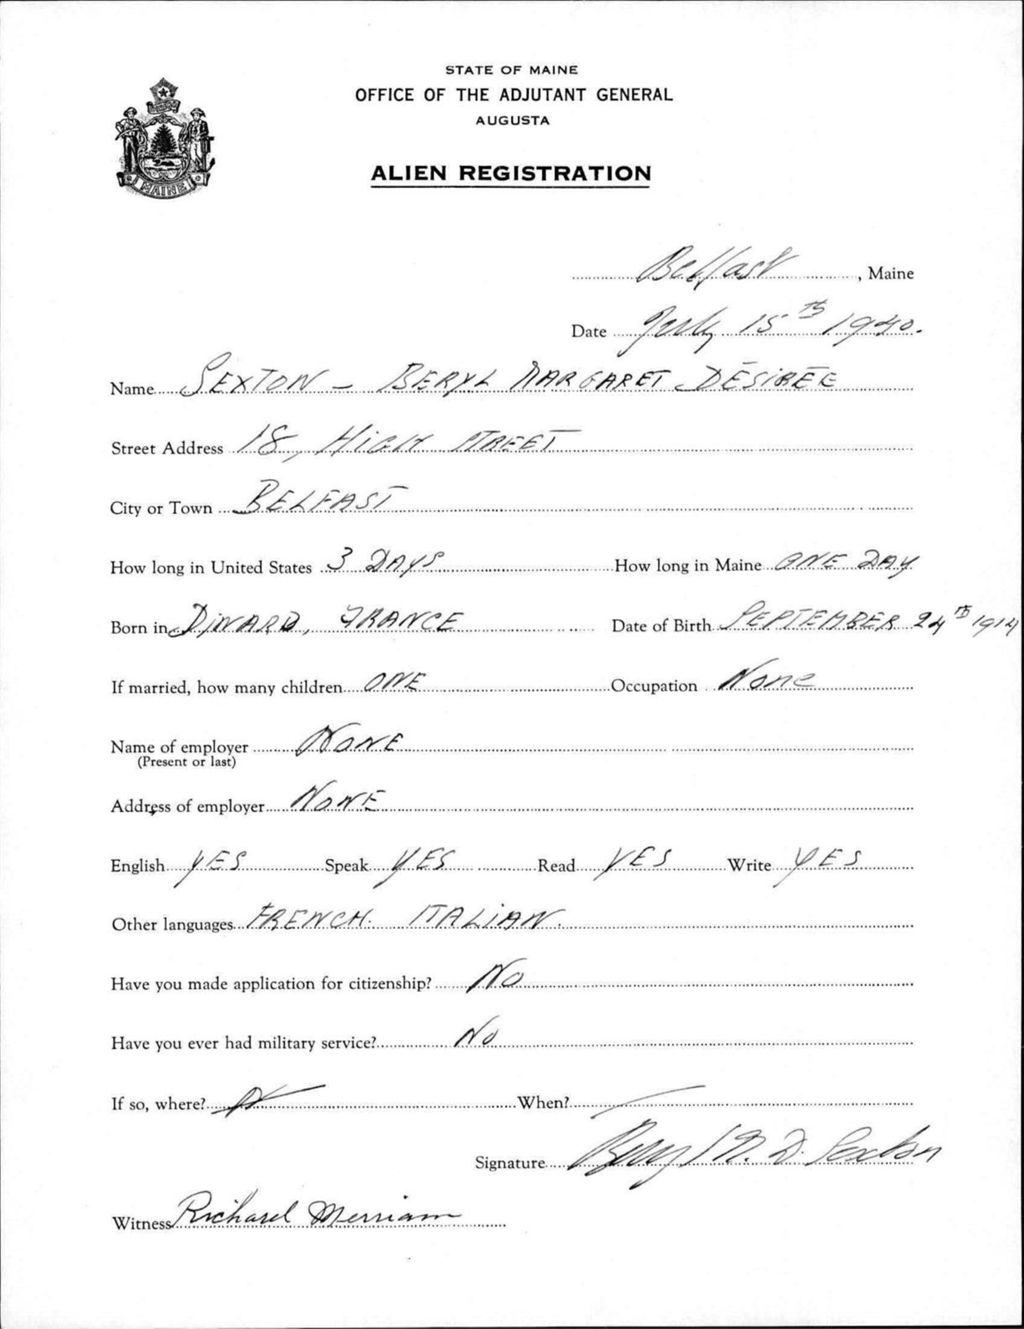 STATE OF MAINE
OFFICE OF THE ADJUTANT GENERAL
AUGUSTA
ALIEN REGISTRATION
MAINE
Belfast, Maine
Date July 15th 1940.
Name SEXTON - BERYL MARGARET DÉSIRÉE
Street Address 18, HIGH STREET
City or Town BELFAST
How long in United States 3 DAYS How long in Maine ONE DAY
Born in DINARD, FRANCE Date of Birth SEPTEMBER 24TH 1914
If married, how many children ONE Occupation None
Name of employer NONE
(Present or last)
Address of employer NONE
English YES Speak YES Read YES Write YES
Other languages FRENCH. ITALIAN.
Have you made application for citizenship? No
Have you ever had military service? No
If so, where? When?
Signature Beryl M. D. Sexton
Witness Richard Merriam